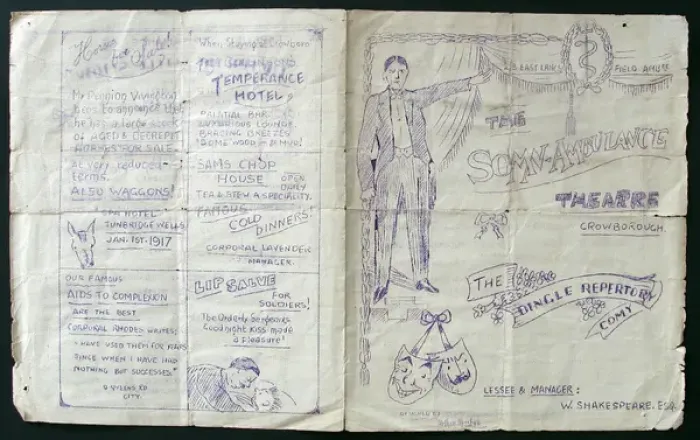 Horses
For Sale!
Mr Pennion Vavington
begs to announce that
he has a large stock
of AGED & DECREPIT
HORSES FOR SALE.
at very reduced
terms.
ALSO WAGGONS!
SPA HOTEL
TUNBRIDGE WELLS
JAN. 1ST. 1917
OUR FAMOUS
AIDS TO COMPLEXION
ARE THE BEST
CORPORAL RHODES WRITES:
"I HAVE USED THEM FOR YEARS
SINCE WHEN I HAVE HAD
NOTHING BUT SUCCESSES."
QUEENS RD
CITY.
When Stay at Crowboro
TEMPERANCE
HOTEL,
PALATIAL BAR
LUXURIOUS LOUNGE.
BRACING BREEZES
SAMS CHOP
HOUSE OPEN
DAILY
TEA & STEW A SPECIALITY.
FAMOUS
COLD
DINNERS!
CORPORAL LAVENDER
MANAGER.
LIP SALVE
FOR
SOLDIERS!
The Orderly Sergeants
Goodnight Kiss made
a pleasure!
EAST LANCS
FIELD AMBCE
THE
SOMN-AMBULANCE
THEATRE
CROWBOROUGH.
THE
DINGLE REPERTORY
COMY
LESSEE & MANAGER:
W. SHAKESPEARE. ESQ.